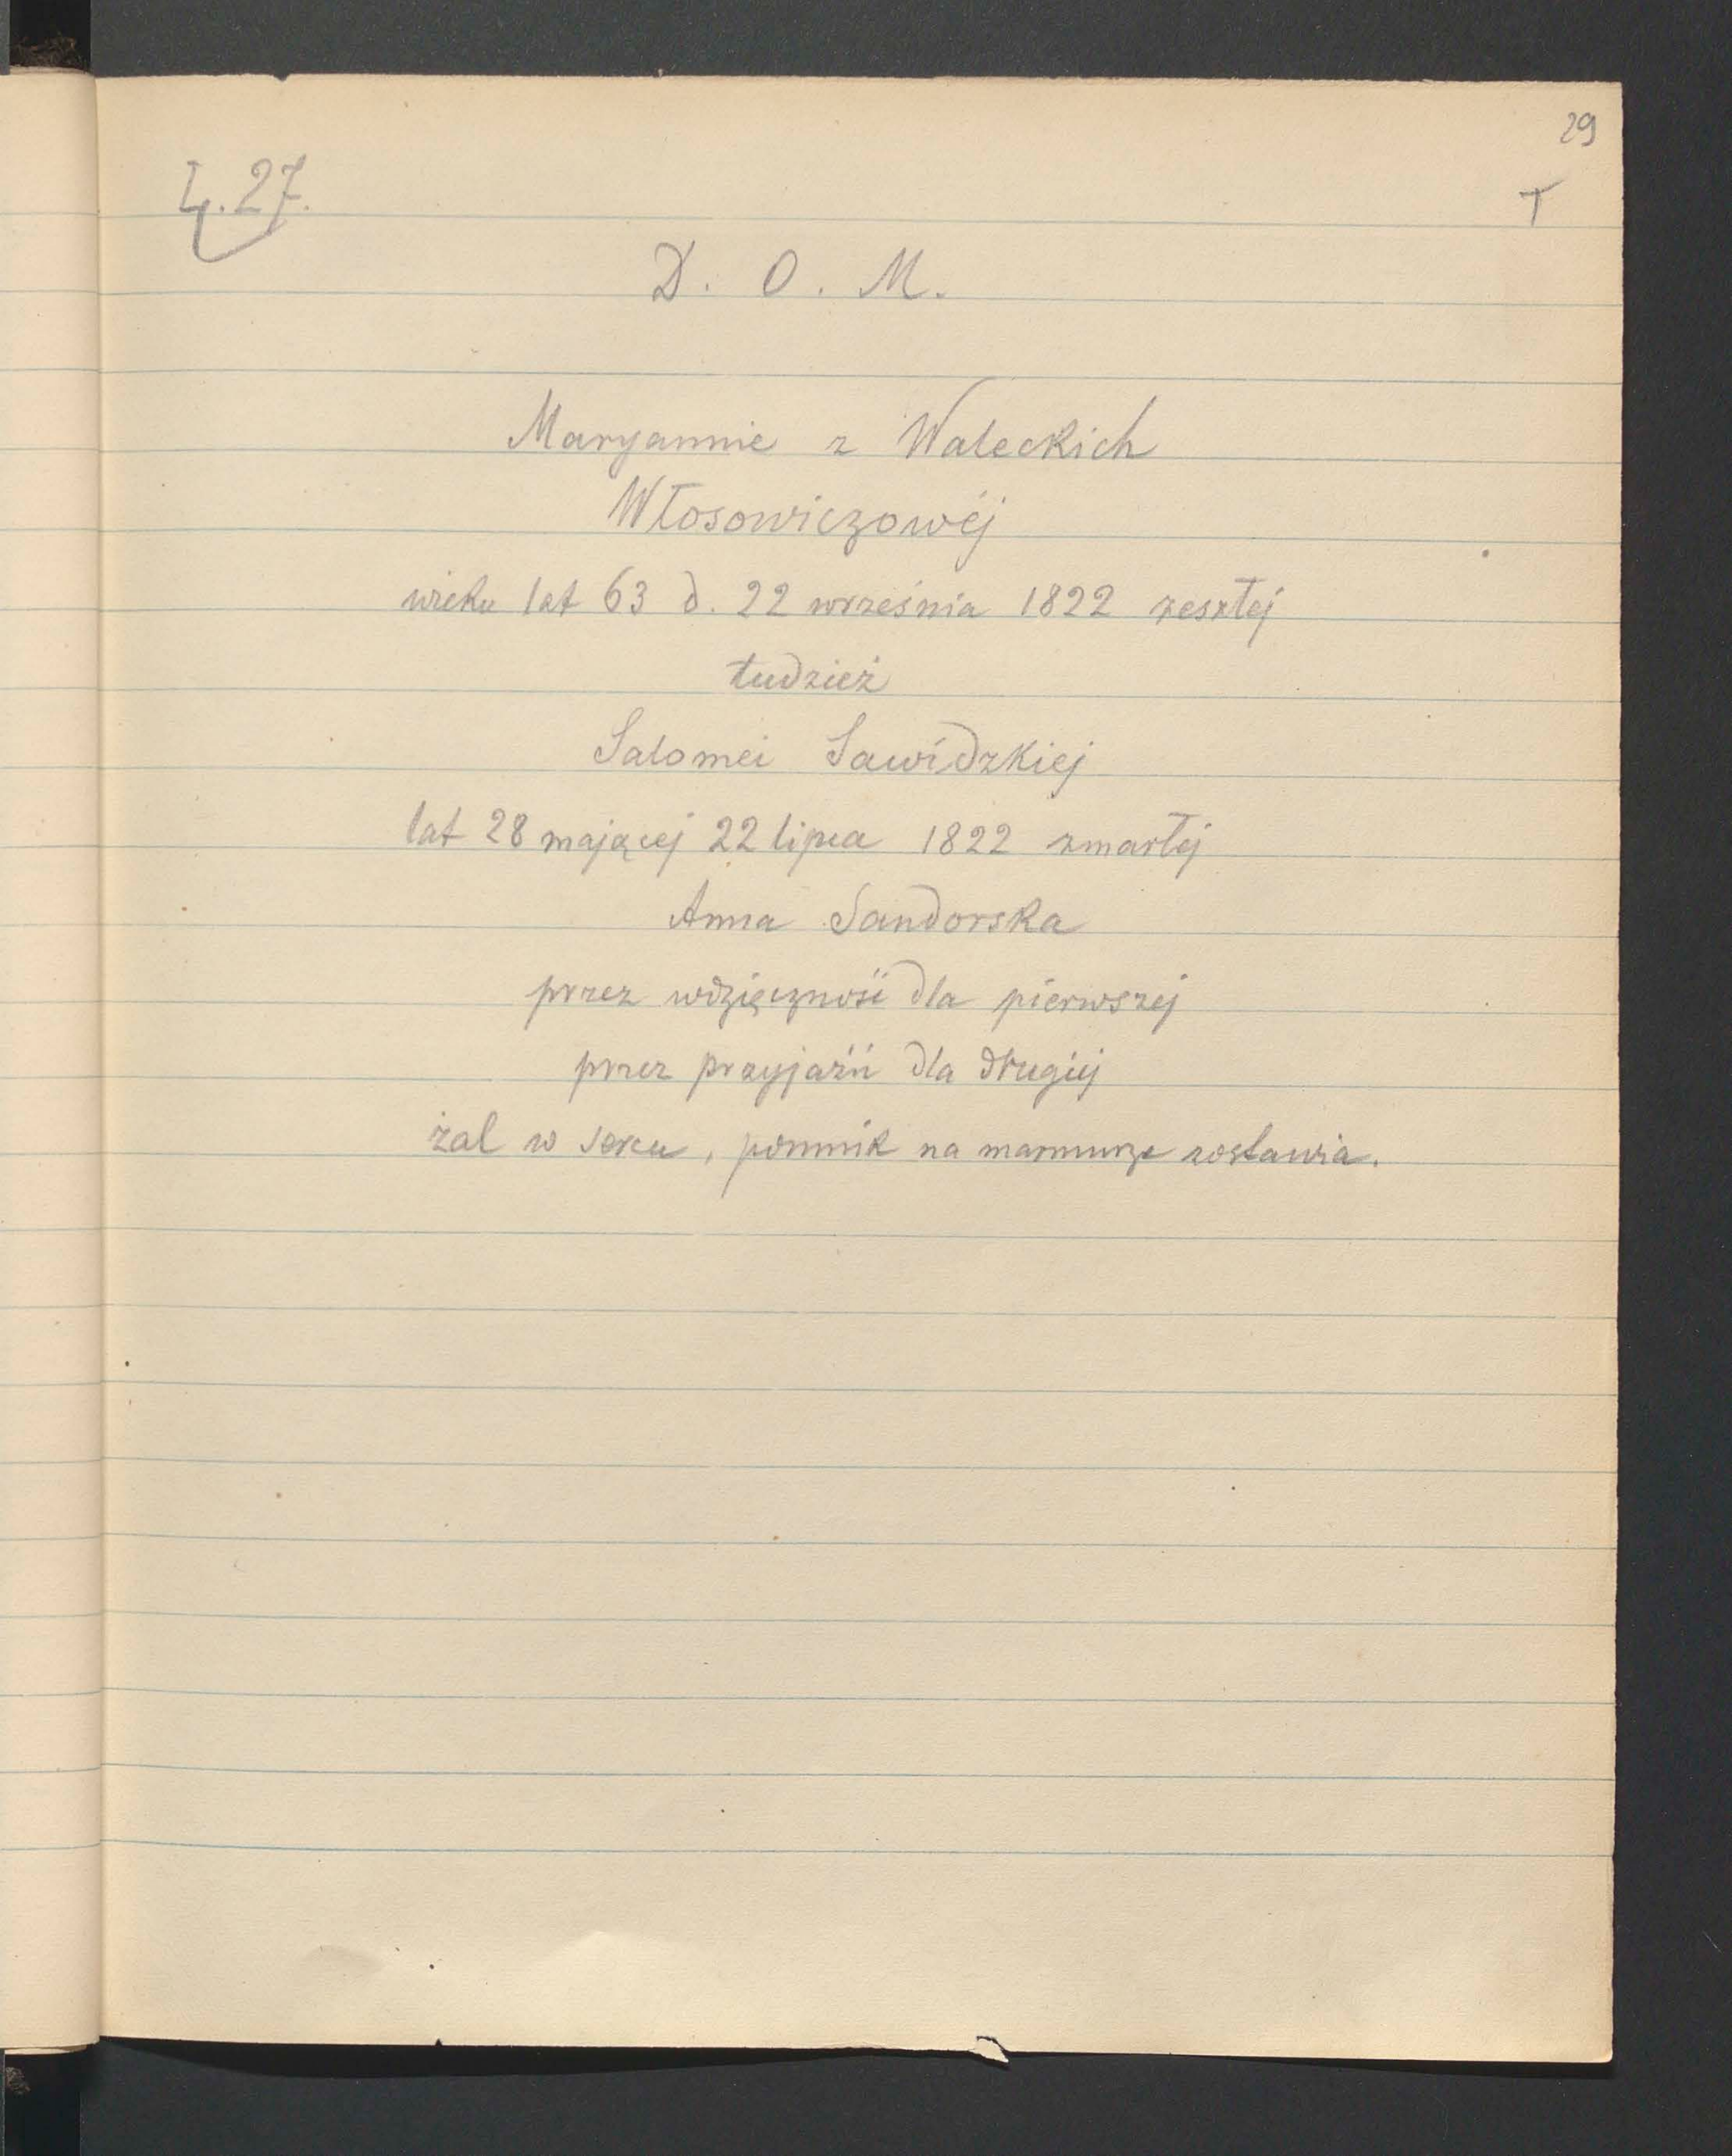 29
4.27.
T
D. O. M.
Maryannie z Waleckich
Włosowiczowéj
wieku lat 63 d. 22 września 1822 zeszłej
tudzież
Salomei Sawidzkiej
lat 28 mającej 22 lipca 1822 zmarłej
Anna Sandorska
przez wdzięczność dla pierwszej
przez przyjaźń dla drugiej
żal w sercu, pomnik na marmurze zostawia.